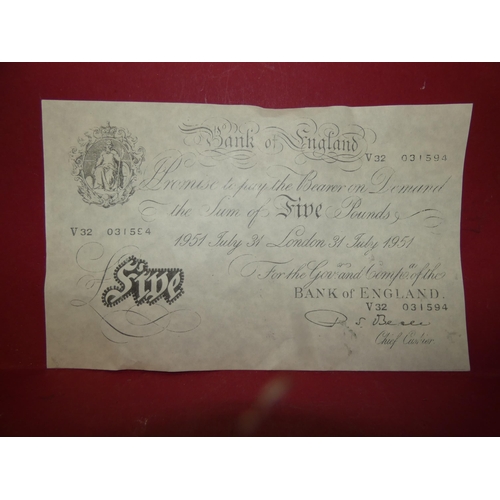 Bank of England
V32 031594
I Promise to pay the Bearer on Demand
the Sum of Five Pounds
V32 031594
1951 July 31 London 31 July 1951
For the Govr. and Compa. of the
Five
BANK of ENGLAND.
V32 031594
Chief Cashier